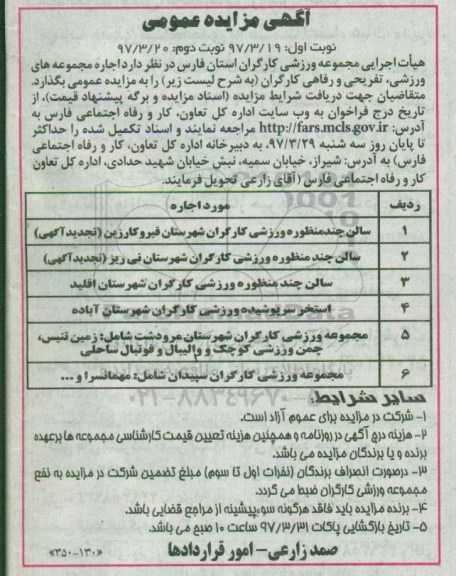 آگهی مزایده عمومی
نوبت اول: ۹۷/۳/۱۹ نوبت دوم: ۹۷/۳/۲۰
هیأت اجرایی مجموعه ورزشی کارگران استان فارس در نظر دارد اجاره مجموعه های
ورزشی، تفریحی و رفاهی کارگران (به شرح لیست زیر) را به مزایده عمومی بگذارد.
متقاضیان جهت دریافت شرایط مزایده (اسناد مزایده و برگه پیشنهاد قیمت)، از
تاریخ درج فراخوان به وب سایت اداره کل تعاون، کار و رفاه اجتماعی فارس به
آدرس: http://fars.mcls.gov.ir مراجعه نمایند و اسناد تکمیل شده را حداکثر
تا پایان روز سه شنبه ۹۷/۳/۲۹، به دبیرخانه اداره کل تعاون، کار و رفاه اجتماعی
فارس) به آدرس: شیراز، خیابان سمیه، نبش خیابان شهید حدادی، اداره کل تعاون
کار و رفاه اجتماعی فارس (آقای زارعی تحویل فرمایند.
ردیف مورد اجاره
۱ سالن چندمنظوره ورزشی کارگران شهرستان قیروکارزین (تجدیدآگهی)
۲ سالن چندمنظوره ورزشی کارگران شهرستان نی ریز (تجدیدآگهی)
۳ سالن چند منظوره ورزشی کارگران شهرستان اقلید
۴ استخر سرپوشیده ورزشی کارگران شهرستان آباده
۵ مجموعه ورزشی کارگران شهرستان مرودشت شامل: زمین تنیس،
چمن ورزشی کوچک و والیبال و فوتبال ساحلی
۶ مجموعه ورزشی کارگران سپیدان شامل: مهمانسرا و ...
سایر شرایط:
۱- شرکت در مزایده برای عموم آزاد است.
۲- هزینه درج آگهی در روزنامه و همچنین هزینه تعیین قیمت کارشناسی مجموعه ها برعهده
برنده و یا برندگان مزایده می باشد.
۳- درصورت انصراف برندگان (نفرات اول تا سوم) مبلغ تضمین شرکت در مزایده به نفع
مجموعه ورزشی کارگران ضبط می گردد.
۴- برنده مزایده باید فاقد هرگونه سوءپیشینه از مراجع قضایی باشد.
۵- تاریخ بازگشایی پاکات ۹۷/۳/۳۱ ساعت ۱۰ صبح می باشد.
صمد زارعی- امور قراردادها
«۳۵۰-۱۳۰»